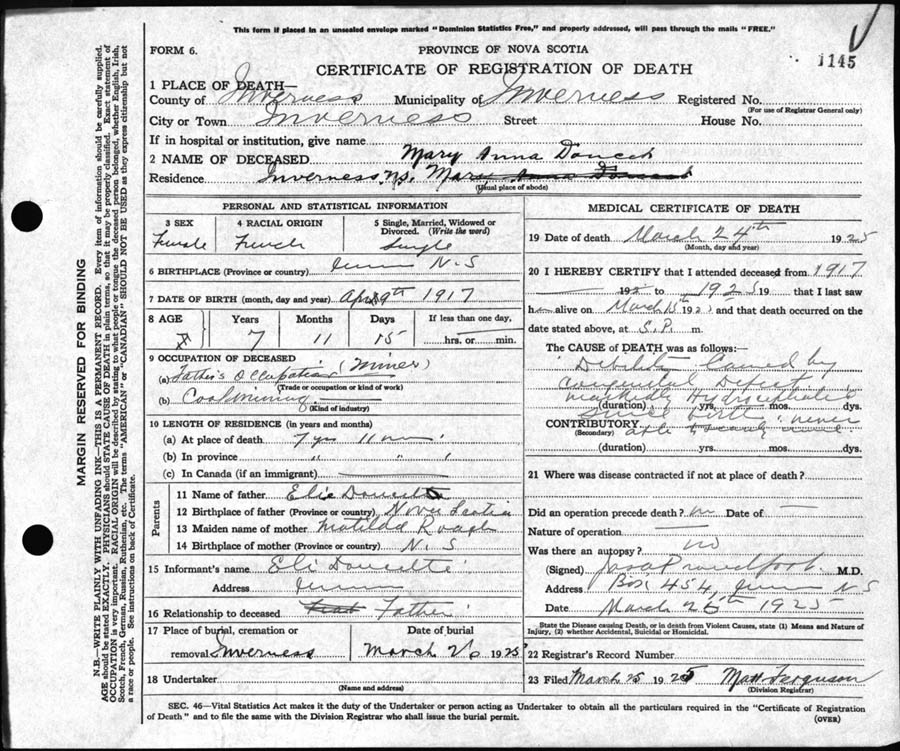 This form if placed in an unsealed envelope marked "Dominion Statistics Free," and properly addressed, will pass through the mails "FREE."
FORM 6.
PROVINCE OF NOVA SCOTIA
1145
CERTIFICATE OF REGISTRATION OF DEATH
1 PLACE OF DEATH—
County of Inverness Municipality of Inverness Registered No.
(For use of Registrar General only)
City or Town Inverness Street House No.
If in hospital or institution, give name
2 NAME OF DECEASED Mary Anna Doucet
Residence Inverness, N.S. Mary Anna Doucet
(Usual place of abode)
PERSONAL AND STATISTICAL INFORMATION
3 SEX Female
4 RACIAL ORIGIN French
5 Single, Married, Widowed or Divorced. (Write the word) Single
6 BIRTHPLACE (Province or country) N.S
7 DATE OF BIRTH (month, day and year) Apr 9th 1917
8 AGE Years 7 Months 11 Days 15 If less than one day, hrs. or min.
9 OCCUPATION OF DECEASED (Miner)
(a) Father's Occupation
(Trade or occupation or kind of work)
(b) Coal Mining
(Kind of industry)
10 LENGTH OF RESIDENCE (in years and months)
(a) At place of death 7 yrs 11 mos
(b) In province " "
(c) In Canada (if an immigrant)
Parents
11 Name of father Elie Doucette
12 Birthplace of father (Province or country) Nova Scotia
13 Maiden name of mother Matilda Roach
14 Birthplace of mother (Province or country) N.S
15 Informant's name Eli Doucette
Address
16 Relationship to deceased Father
17 Place of burial, cremation or removal Inverness
Date of burial March 26 1925
18 Undertaker
(Name and address)
MEDICAL CERTIFICATE OF DEATH
19 Date of death March 24th 1925
(Month, day and year)
20 I HEREBY CERTIFY that I attended deceased from 1917
192 to 1925 19 and that I last saw
h alive on March 15th 192 and that death occurred on the
date stated above, at 5.P. m.
The CAUSE of DEATH was as follows:—
Debility Caused by
Congenital Defect
markedly Hydrocephalic
(duration) yrs. mos. dys.
since birth never
CONTRIBUTORY able to
(Secondary) (duration) yrs. mos. dys.
21 Where was disease contracted if not at place of death?
Did an operation precede death? no Date of
Nature of operation
Was there an autopsy? no
(Signed) Proudfoot M.D.
Address Box 454 N S
Date March 26th 1925
State the Disease causing Death, or in death from Violent Causes, state (1) Means and Nature of Injury, (2) whether Accidental, Suicidal or Homicidal.
22 Registrar's Record Number
23 Filed March 25 1925 Matt Ferguson
(Division Registrar)
SEC. 46—Vital Statistics Act makes it the duty of the Undertaker or person acting as Undertaker to obtain all the particulars required in the "Certificate of Registration
of Death" and to file the same with the Division Registrar who shall issue the burial permit.
(OVER)
MARGIN RESERVED FOR BINDING
N.B.—WRITE PLAINLY WITH UNFADING INK—THIS IS A PERMANENT RECORD. Every item of information should be carefully supplied.
AGE should be stated EXACTLY. PHYSICIANS should STATE CAUSE OF DEATH in plain terms, so that it may be properly classified. Exact statement of
OCCUPATION is very important. RACIAL ORIGIN will be described by stating to what people or tongue the deceased person belonged, whether English, Irish,
Scotch, French, German, Russian, Ruthenian, etc. The terms "AMERICAN" or "CANADIAN" SHOULD NOT BE USED as they express citizenship but not
a race or people. See instructions on back of Certificate.